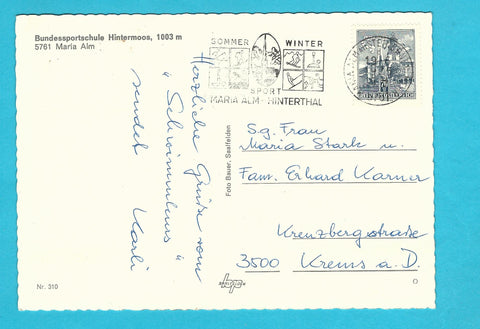 Bundessportschule Hintermoos, 1003 m
5761 Maria Alm
Herzliche Grüße vom
"Schwimmkurs"
sendet Karli
Foto Bauer, Saalfelden
SOMMER WINTER
SPORT
MARIA ALM - HINTERTHAL
Sg. Frau
Maria Stark u.
Fam. Erhard Karner
Kreuzbergstraße
3500 Krems a. D.
Nr. 310